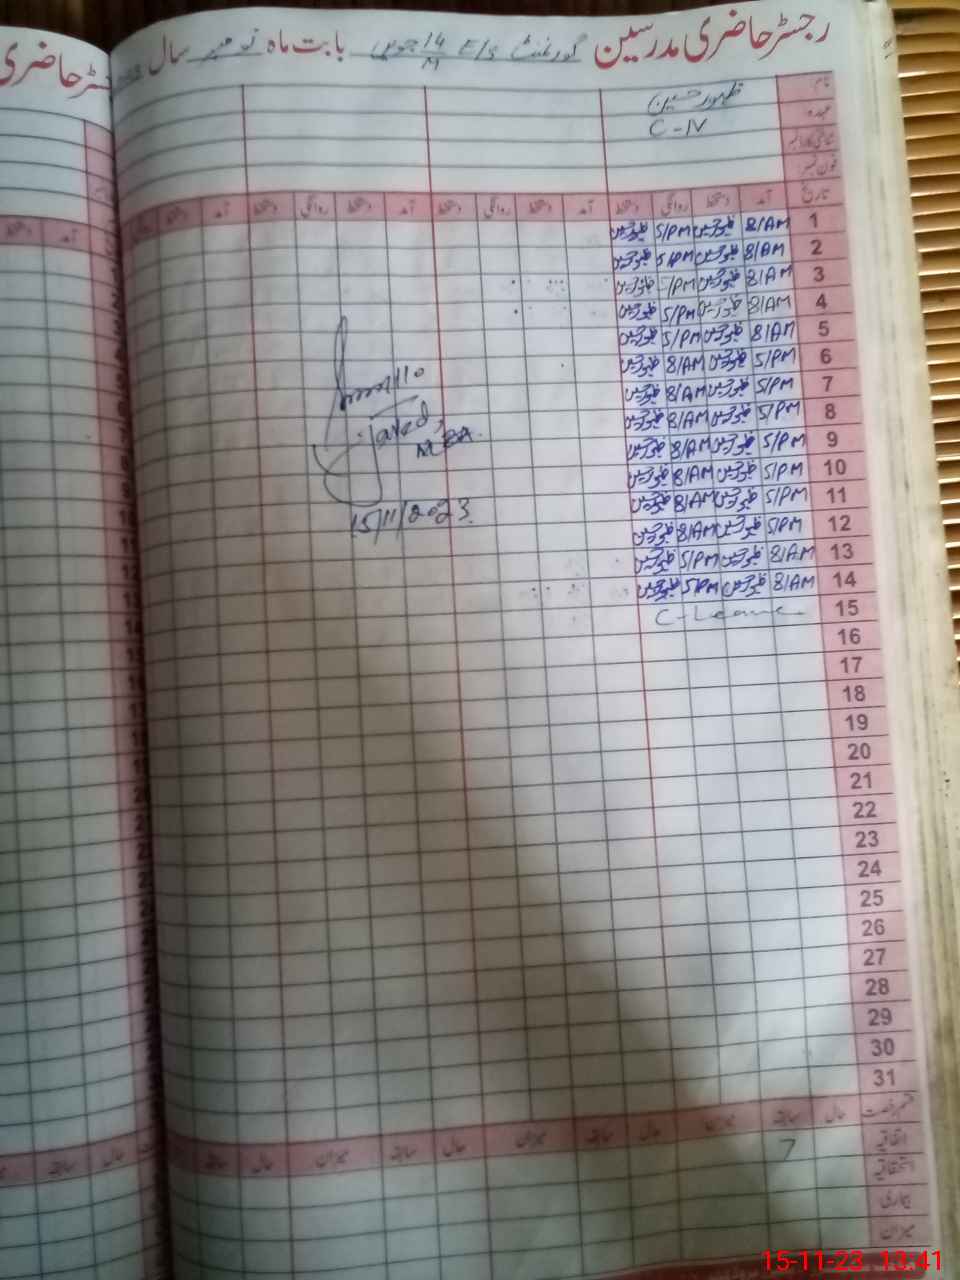 رجسٹر حاضری مدرسین گورنمنٹ E/S 14/M جویں بابت ماہ نومبر سال
نام ظہور حسین
عہدہ C-IV
شناختی کارڈ نمبر
فون نمبر
تاریخ آمد دستخط روانگی دستخط آمد دستخط روانگی دستخط آمد دستخط روانگی دستخط آمد
1 8/AM ظہور حسین 5/PM ظہور حسین
2 8/AM ظہور حسین 5/PM ظہور حسین
3 8/AM ظہور حسین 5/PM ظہور حسین
4 8/AM ظہور حسین 5/PM ظہور حسین
5 8/AM ظہور حسین 5/PM ظہور حسین
6 5/PM ظہور حسین 8/AM ظہور حسین
7 5/PM ظہور حسین 8/AM ظہور حسین
8 5/PM ظہور حسین 8/AM ظہور حسین
9 5/PM ظہور حسین 8/AM ظہور حسین
10 5/PM ظہور حسین 8/AM ظہور حسین
11 5/PM ظہور حسین 8/AM ظہور حسین
12 5/PM ظہور حسین 8/AM ظہور حسین
13 8/AM ظہور حسین 5/PM ظہور حسین
14 8/AM ظہور حسین 5/PM ظہور حسین
15 C-Leave
15/11/2023
16
17
18
19
20
21
22
23
24
25
26
27
28
29
30
31
قسم رخصت حال سابقہ میزان حال سابقہ میزان حال سابقہ میزان حال سابقہ
اتفاقیہ 7
استحقاقیہ
بیماری
میزان
15-11-23 13:41